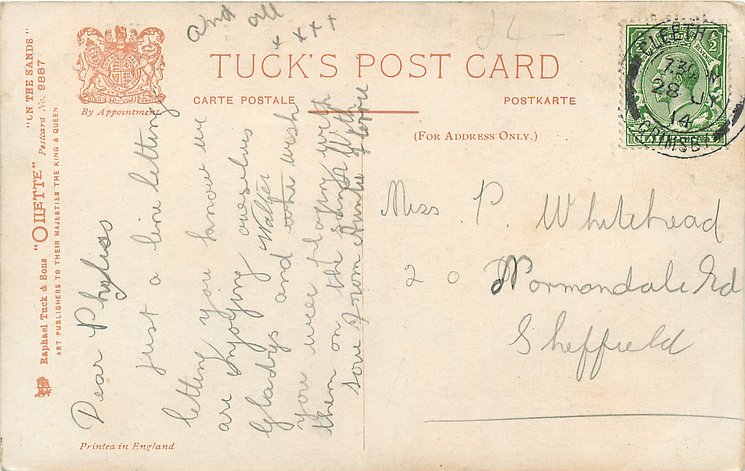 "ON THE SANDS"
Postcard No. 9887
Raphael Tuck & Sons "OILETTE"
ART PUBLISHERS TO THEIR MAJESTIES THE KING & QUEEN
By Appointment
TUCK'S POST CARD
CARTE POSTALE
POSTKARTE
(FOR ADDRESS ONLY.)
£4 -
CLEETH
GRIMSBY
7.30
28 JY
14
Dear Phyliss
Just a line letting
letting you know we
are Injoying ourselves
Gladys and Walter
You and othe wish
were playing with
them on the sands With
love from Auntie Florrie
and all
x x x x
Miss P. Whitehead
20 Normandale Rd
Sheffield
Printed in England